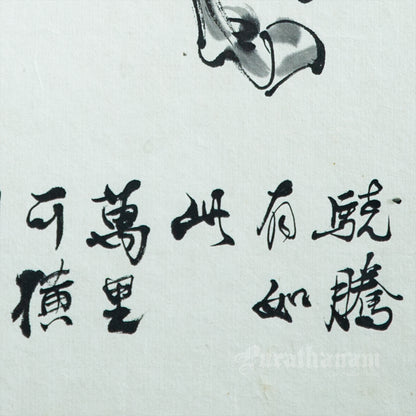 驍騰
有如
此
萬里
可橫
Purathanam